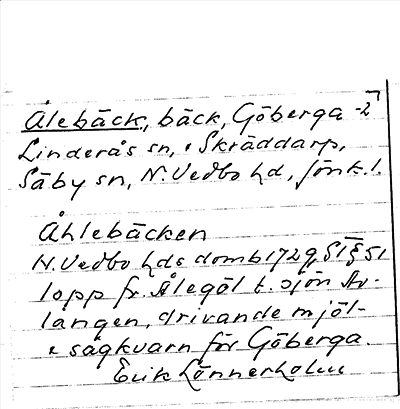 Ålebäck, bäck, Göberga
Linderås sn, Skräddarp,
Säby sn, N. Vedbo hd, Jönk. l.
Åhlebäcken
N. Vedbo hds domb 1729, § 51
lopp fr. Ålegöl t. sjön Av-
langen, drivande mjöl-
& sågkvarn för Göberga.
Erik Lönnerholm